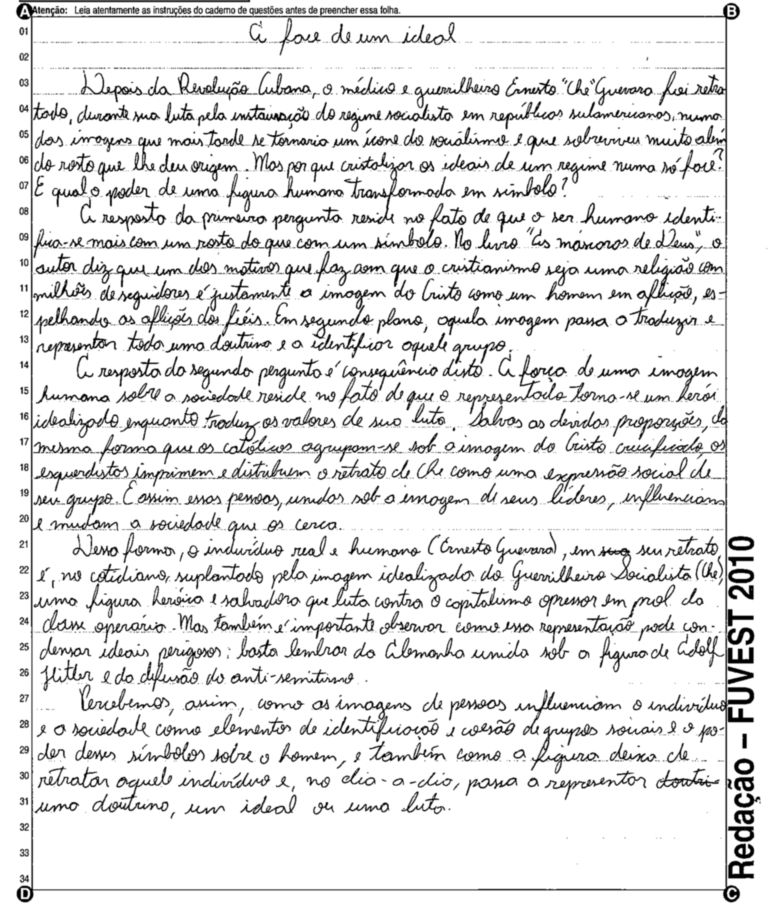 A Atenção: Leia atentamente as instruções do caderno de questões antes de preencher essa folha. B
01 A face de um ideal
02
03 Depois da Revolução Cubana, o médico e guerrilheiro Ernesto "Che" Guevara foi retra-
04 tado, durante sua luta pela instauração do regime socialista em repúblicas sulamericanas, numa
05 das imagens que mais tarde se tornaria um ícone do socialismo e que sobreviveu muito além
06 do rosto que lhe deu origem. Mas por que cristalizar os ideais de um regime numa só face?
07 E qual o poder de uma figura humana transformada em símbolo?
08 A resposta da primeira pergunta reside no fato de que o ser humano identi-
09 fica-se mais com um rosto do que com um símbolo. No livro "As máscaras de Deus", o
10 autor diz que um dos motivos que faz com que o cristianismo seja uma religião com
11 milhões de seguidores é justamente a imagem do Cristo como um homem em aflição, es-
12 pelhando as aflições dos fiéis. Em segundo plano, aquela imagem passa a traduzir e
13 representar toda uma doutrina e a identificar aquele grupo.
14 A resposta da segunda pergunta é consequência disto. A força de uma imagem
15 humana sobre a sociedade reside no fato de que o representado torna-se um herói
16 idealizado enquanto traduz os valores de sua luta. Salvas as devidas proporções, da
17 mesma forma que os católicos agrupam-se sob a imagem do Cristo crucificado, os
18 esquerdistas imprimem e distribuem o retrato de Che como uma expressão social de
19 seu grupo. E assim essas pessoas, unidas sob a imagem de seus líderes, influenciam
20 e mudam a sociedade que os cerca.
21 Dessa forma, o indivíduo real e humano (Ernesto Guevara), em sua seu retrato
22 é, no cotidiano, suplantado pela imagem idealizada do Guerrilheiro Socialista (Che),
23 uma figura heróica e salvadora que luta contra o capitalismo opressor em prol da
24 classe operária. Mas também é importante observar como essa representação pode con-
25 densar ideais perigosos: basta lembrar da Alemanha unida sob a figura de Adolf
26 Hitler e da difusão do anti-semitismo.
27 Percebemos, assim, como as imagens de pessoas influenciam o indivíduo
28 e a sociedade como elementos de identificação e coesão de grupos sociais e o po-
29 der desses símbolos sobre o homem, e também como a figura deixa de
30 retratar aquele indivíduo e, no dia-a-dia, passa a representar doutri-
31 uma doutrina, um ideal ou uma luta.
32
33
34
D C
Redação – FUVEST 2010